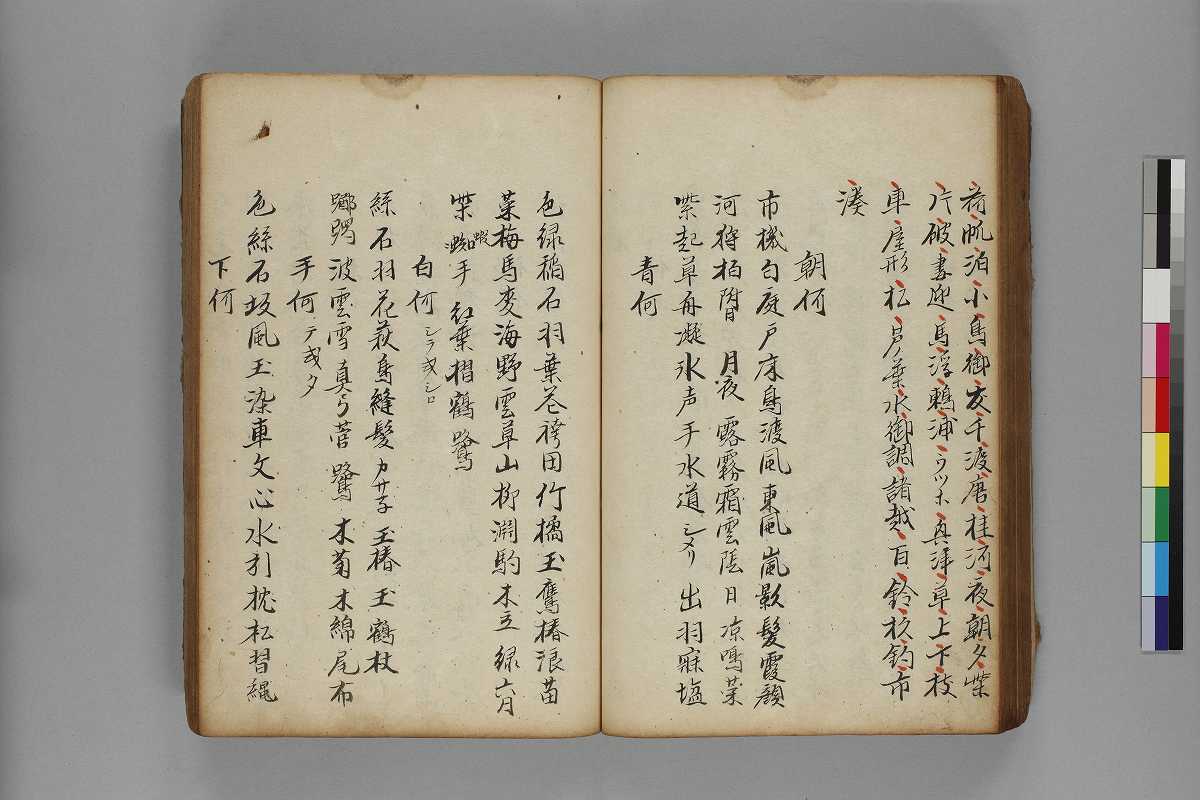 荷帆泊小鳥御友千渡唐桂河夜朝夕柴
片破書迎馬浮鵜浦ウツホ真浮草上下枝
車屋形松戸葉水御調諸越百鈴杉釣市
湊
朝何
市機匂庭戸床鳥渡風東風嵐影髪霞顔
河狩柏附月夜露霧霜雲陰日凉鳴菜
柴起草舟凝氷声手水道シメリ出羽寐塩
青何
色緑稲石羽葉花袴田竹橘玉鷹椿浪苗
葉梅馬麦海野雲草山柳淵駒木立緑六月
柴手紅葉摺鶴鷺
白何シラ或シロ
絲石羽花萩鳥縫髪カサ子玉椿玉鶴杖
躑躅波雲雪真弓菅鷺木菊木綿尾布
手何テ或タ
色絲石坂風玉染車文心水引枕松習縄
下何